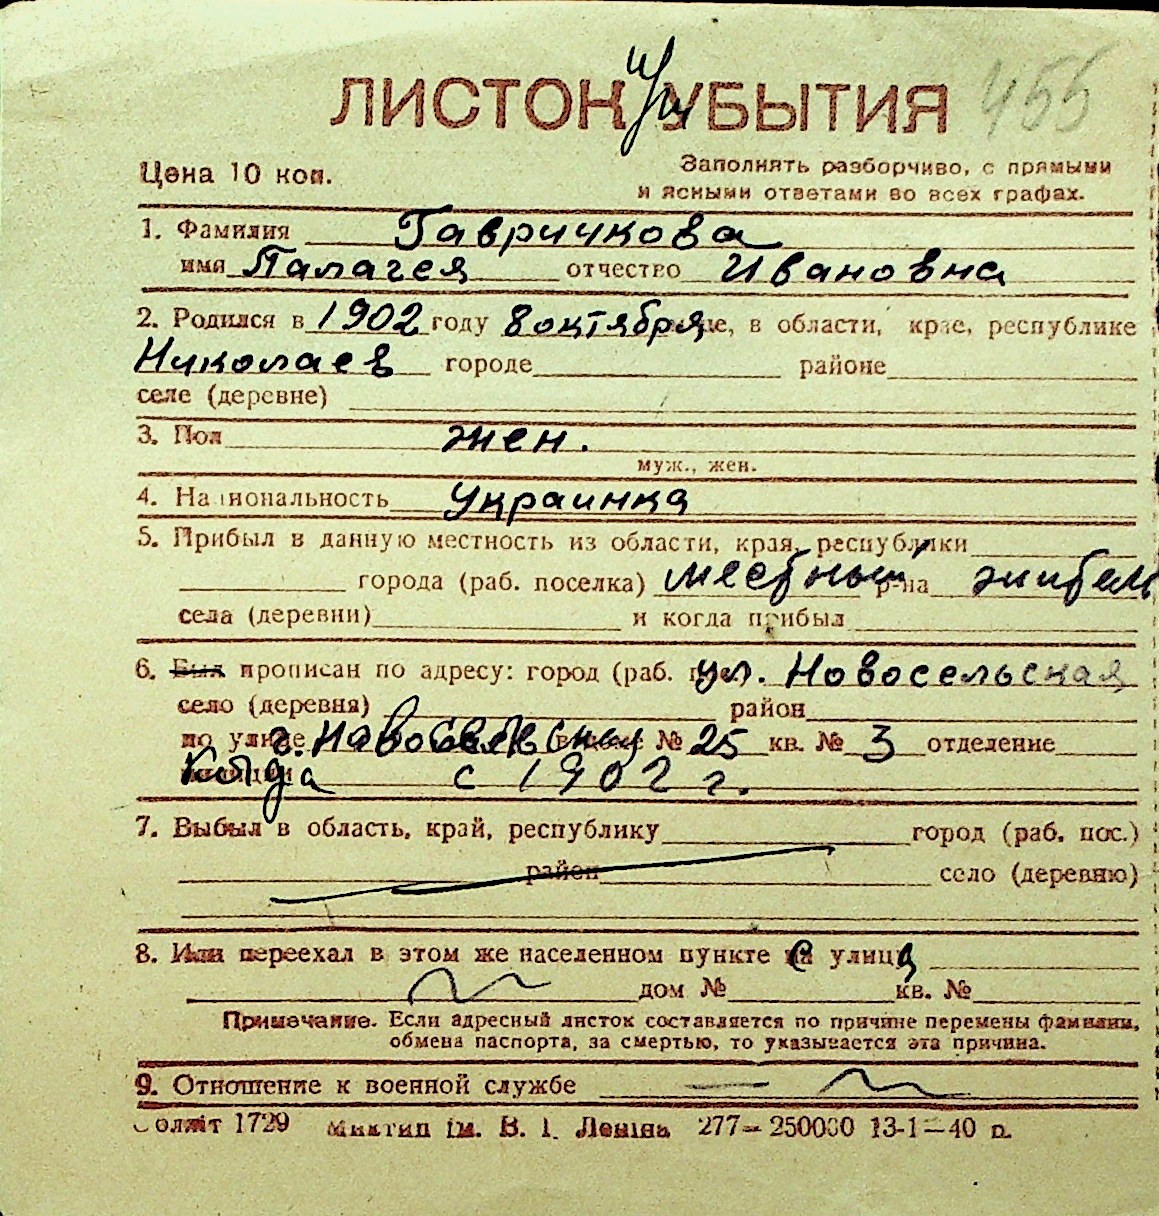 ЛИСТОК УБЫТИЯ 455
Цена 10 коп.
Заполнять разборчиво, с прямыми
и ясными ответами во всех графах.
1. Фамилия Гавричкова
имя Палагея отчество Ивановна
2. Родился в 1902 году 8 октября це, в области, крае, республике
Николаев городе районе
селе (деревне)
3. Пол жен.
муж., жен.
4. Национальность украинка
5. Прибыл в данную местность из области, края, республики
города (раб. поселка) местный р-на житель
села (деревни) и когда прибыл
6. Был прописан по адресу: город (раб. ул. Новосельская
село (деревня) район
по улице г. № 25 кв. № 3 отделение
Когда с 1902 г.
7. Выбыл в область, край, республику город (раб. пос.)
район село (деревню)
8. Или переехал в этом же населенном пункте с улица
дом № кв. №
Примечание. Если адресный листок составляется по причине перемены фамилии,
обмена паспорта, за смертью, то указывается эта причина.
9. Отношение к военной службе
Обллiт 1729 Миктип iм. В. I. Ленiна 277—250000 13-1—40 р.